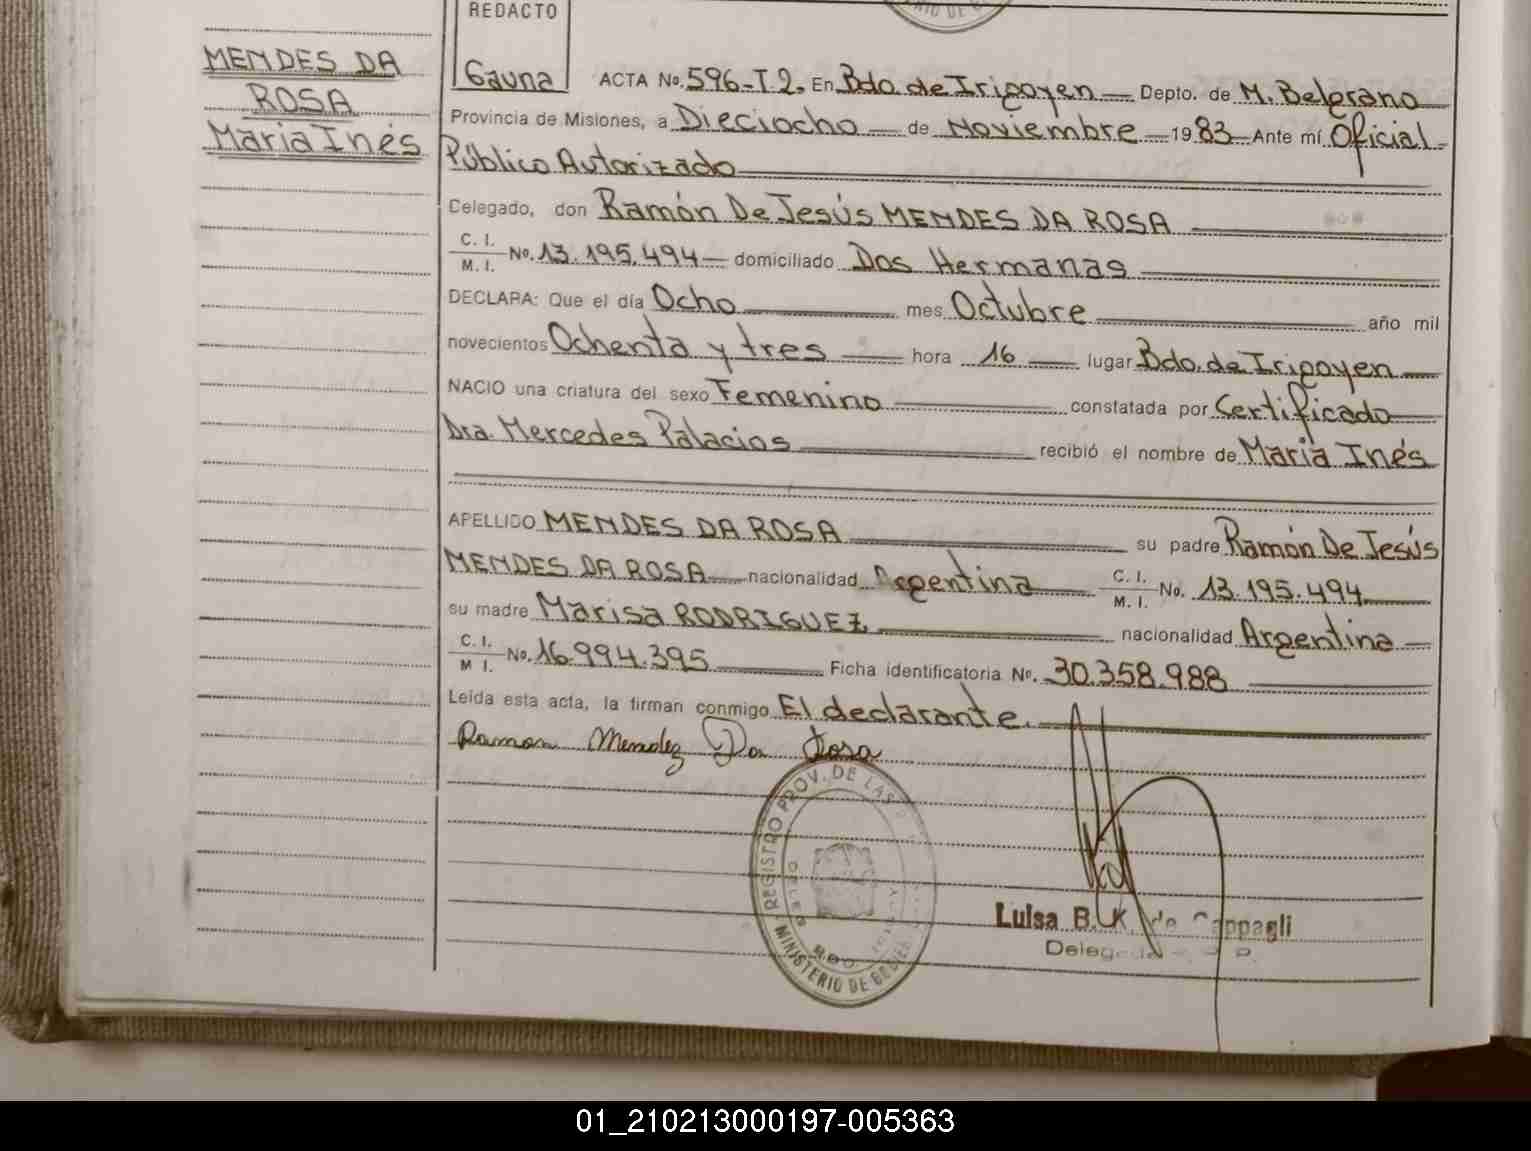 REDACTO
MENDES DA
ROSA
María Inés
Gauna
ACTA No. 596-T.2. En Bdo. de Irigoyen Depto. de M. Belgrano
Provincia de Misiones, a Dieciocho de Noviembre 1983 Ante mí Oficial
Público Autorizado
Celegado, don Ramón De Jesús MENDES DA ROSA
C. I.
M. I. No. 13.195.494 domiciliado Dos Hermanas
DECLARA: Que el día Ocho mes Octubre año mil
novecientos Ochenta y tres hora 16 lugar Bdo. de Irigoyen
NACIO una criatura del sexo Femenino constatada por Certificado
Dra. Mercedes Palacios recibió el nombre de María Inés
APELLIDO MENDES DA ROSA su padre Ramón De Jesús
MENDES DA ROSA nacionalidad Argentina C. I. M. I. No. 13.195.494
su madre Marisa RODRIGUEZ nacionalidad Argentina
C. I.
M I. No. 16.994.395 Ficha identificatoria No. 30.358.988
Leída esta acta, la firman conmigo El declarante.
Ramon Mendez Da Rosa
REGISTRO PROV. DE LAS
MINISTERIO DE
BDO.
Luisa B. K. de Cappagli
01_210213000197-005363